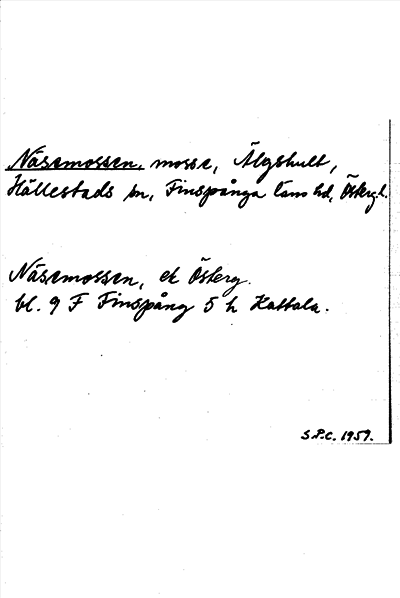 Näsemossen, mosse, Älgshult,
Hällestads sn, Finspånga läns hd, Östergl.
Näsemossen, ek Österg.
bl. 9 F Finspång 5 h Kattala.
S.P.C. 1959.